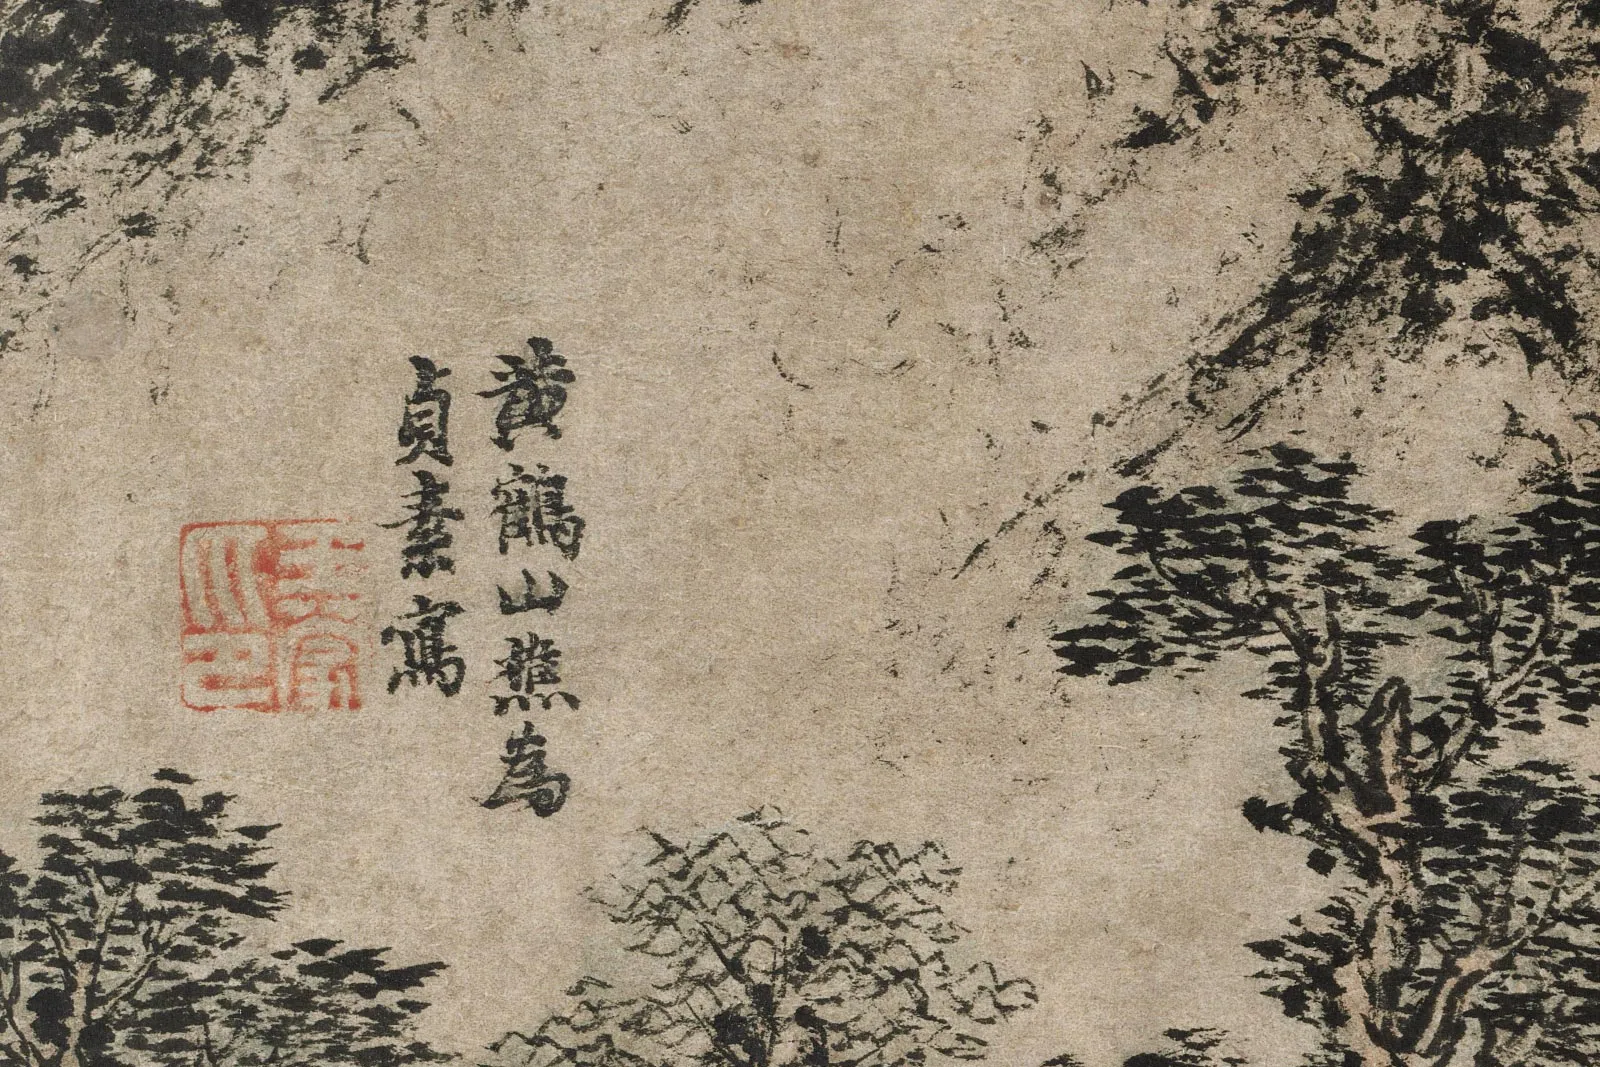 黃鶴山樵為
貞素寫